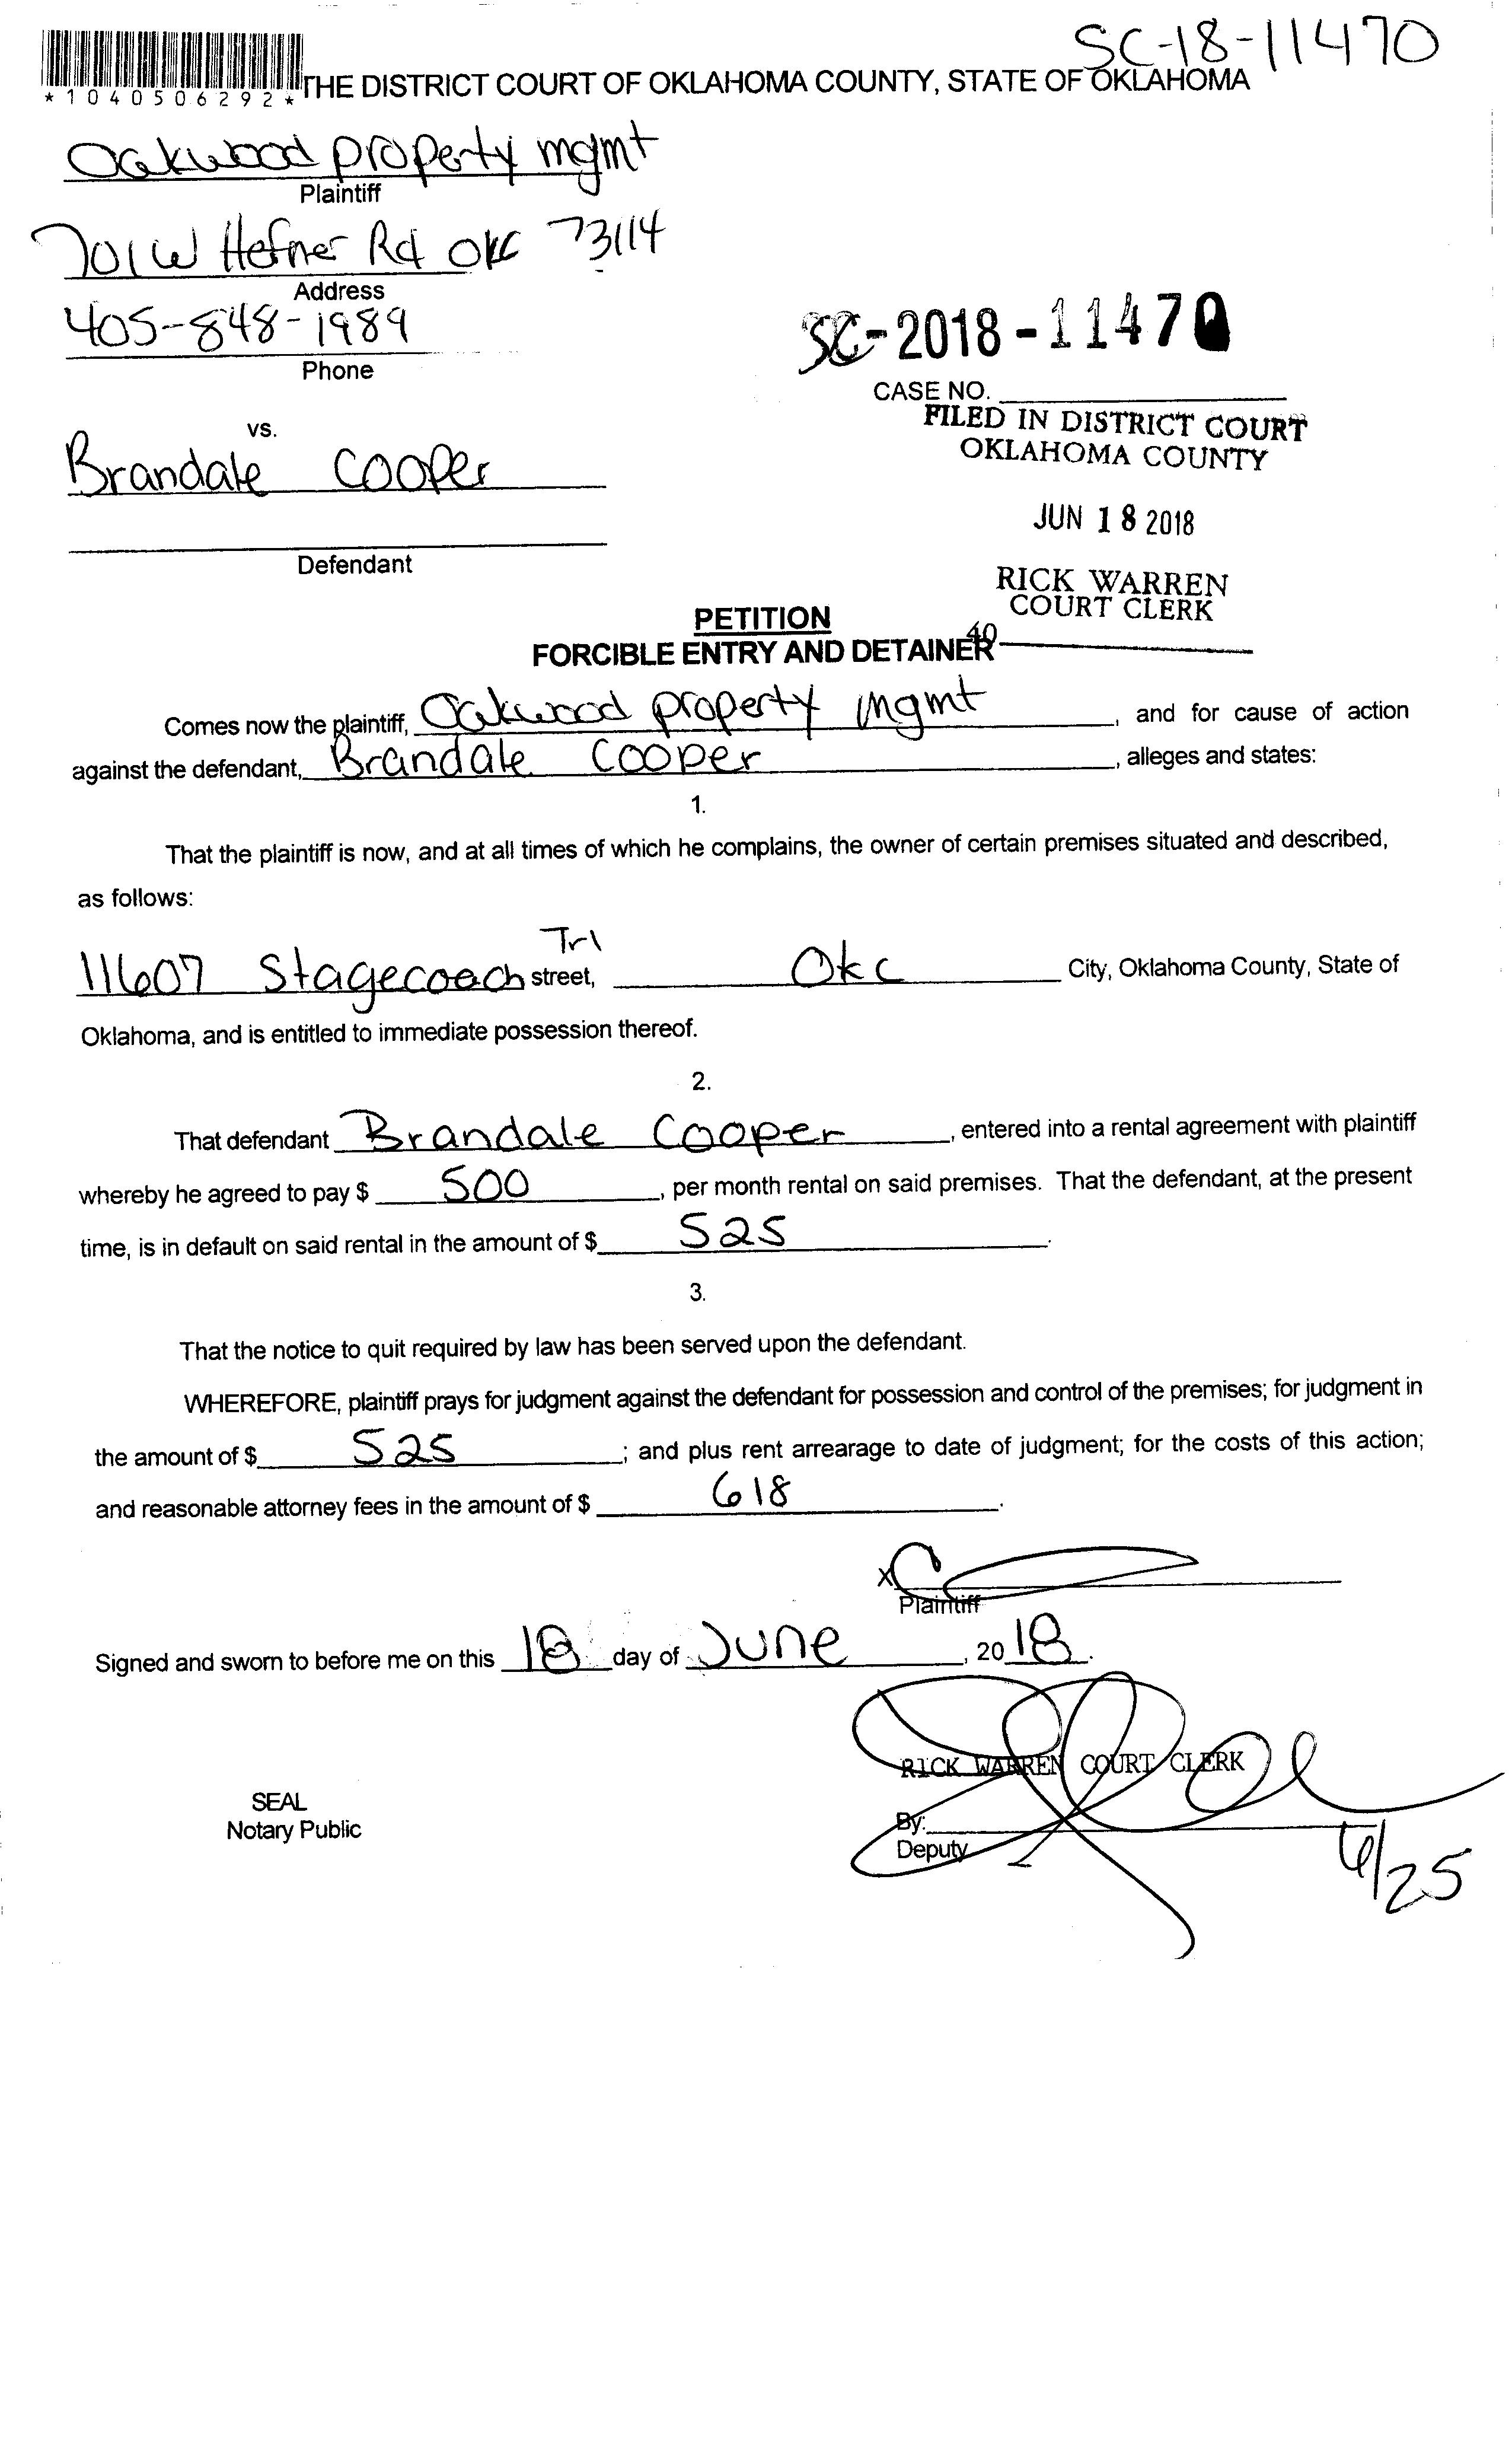 SC-18-11470
*1040506292*
THE DISTRICT COURT OF OKLAHOMA COUNTY, STATE OF OKLAHOMA
Oakwood property mgmt
Plaintiff
701 W Hefner Rd OKC 73114
Address
405-848-1989
Phone
SC-2018-11470
CASE NO.
FILED IN DISTRICT COURT
OKLAHOMA COUNTY
vs.
Brandale Cooper
JUN 18 2018
Defendant
RICK WARREN
COURT CLERK
PETITION
40
FORCIBLE ENTRY AND DETAINER
Comes now the plaintiff, Oakwood property mgmt, and for cause of action
against the defendant, Brandale Cooper, alleges and states:
1.
That the plaintiff is now, and at all times of which he complains, the owner of certain premises situated and described,
as follows:
11607 Stagecoach Trl street, Okc City, Oklahoma County, State of
Oklahoma, and is entitled to immediate possession thereof.
2.
That defendant Brandale Cooper, entered into a rental agreement with plaintiff
whereby he agreed to pay $ 500, per month rental on said premises. That the defendant, at the present
time, is in default on said rental in the amount of $ 525.
3.
That the notice to quit required by law has been served upon the defendant.
WHEREFORE, plaintiff prays for judgment against the defendant for possession and control of the premises; for judgment in
the amount of $ 525; and plus rent arrearage to date of judgment; for the costs of this action;
and reasonable attorney fees in the amount of $ 618.
X
Plaintiff
Signed and sworn to before me on this 18 day of June, 2018.
RICK WARREN COURT CLERK
SEAL
Notary Public
By:
Deputy
6/25